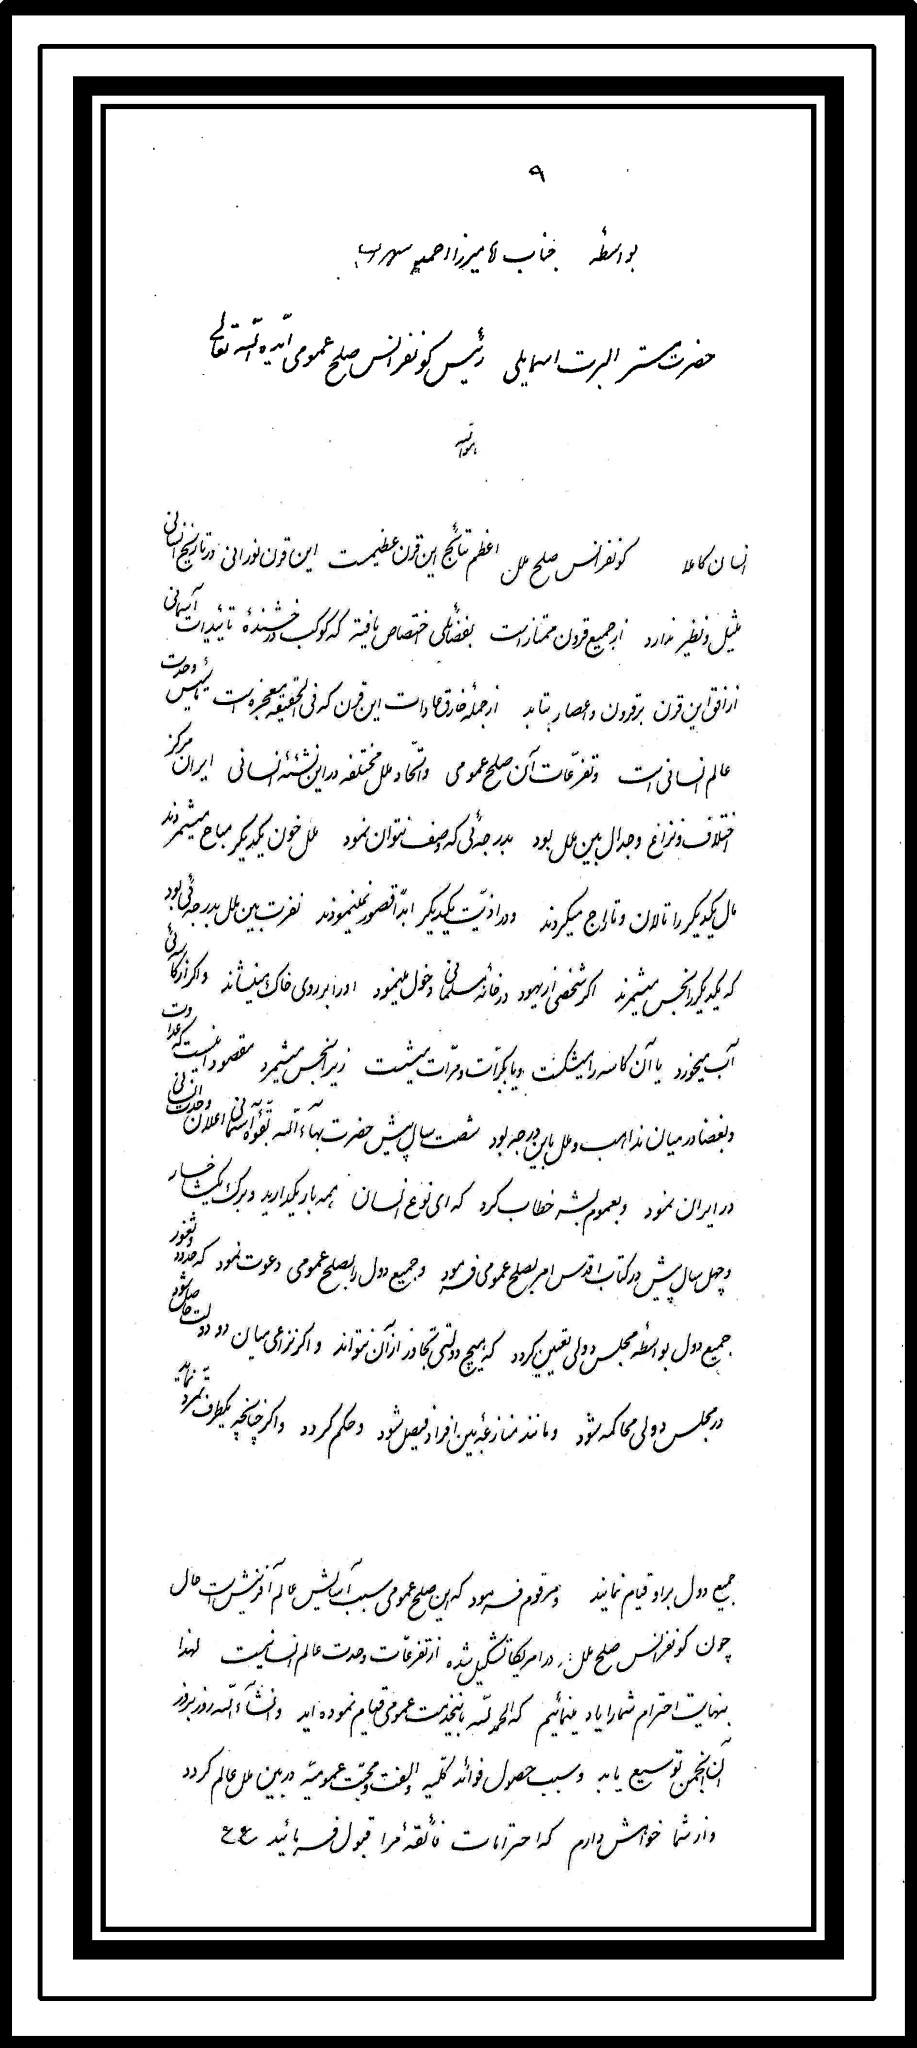 ۹
بواسطهٔ جناب آقا میرزا احمد سهراب
حضرت مستر البرت اسمایلی رئیس کونفرانس صلح عمومی ایّده اللّه تعالی
هواللّه
انسان کاملا کونفرانس صلح ملل اعظم نتائج این قرن عظیمست این قرن نورانی در تاریخ انسانی
مثیل و نظیر ندارد از جمیع قرون ممتاز است بفضائلی اختصاص یافته که کوکب درخشندهٔ تائیدات آسمانی
از افق این قرن بر قرون و اعصار بتابد از جمله خارق عادات این قرن که فی الحقیقه معجزه است تأسیس وحدت
عالم انسانی است و تفرّعات آن صلح عمومی و اتّحاد ملل مختلفه در این نشئهٔ انسانی ایران مرکز
اختلاف و نزاع و جدال بین ملل بود بدرجه‌ئی که وصف نتوان نمود ملل خون یکدیگر مباح میشمردند
مال یکدیگر را تالان و تاراج میکردند و در اذیّت یکدیگر ابداً قصور نمینمودند نفرت بین ملل بدرجه‌ئی بود
که یکدیگر را نجس میشمردند اگر شخصی از یهود در خانهٔ مسلمانی دخول مینمود او را بر روی خاک مینشاند و اگر از کاسه‌ئی
آب میخورد یا آن کاسه را میشکست و یا بکرّات و مرّات میشست زیرا نجس میشمرد مقصود اینست که عداوت
و بغضا در میان مذاهب و ملل باین درجه بود شصت سال پیش حضرت بهآءاللّه بقوّهٔ آسمانی اعلان وحدت انسانی
در ایران نمود و بعموم بشر خطاب کرد که ای نوع انسان همه بار یکدارید و برگ یکشاخسار
و چهل سال پیش در کتاب اقدس امر بصلح عمومی فرمود و جمیع دول را بصلح عمومی دعوت نمود که حدود و ثغور
جمیع دول بواسطهٔ مجلس دولی تعیین گردد که هیچ دولتی تجاوز از آن نتواند و اگر نزاعی میان دو دولت حاصل شود
در مجلس دولی محاکمه شود و مانند منازعهٔ بین افراد فیصل شود و حکم گردد و اگر چنانچه یکطرف تمرّد نماید
جمیع دول بر او قیام نمایند و مرقوم فرمود که این صلح عمومی سبب آسایش عالم آفرینش است حال
چون کونفرانس صلح ملل در امریکا تشکیل شده از تفرّعات وحدت عالم انسانیست لهذا
بنهایت احترام شما را یاد مینمائیم که الحمد للّه باین خدمت عمومی قیام نموده‌اید و انشآءاللّه روز بروز
آن انجمن توسیع یابد و سبب حصول فوائد کلّیه و الفت و محبّت عمومیّه در بین ملل عالم گردد
و از شما خواهش دارم که احترامات فائقهٔ مرا قبول فرمائید ع ع